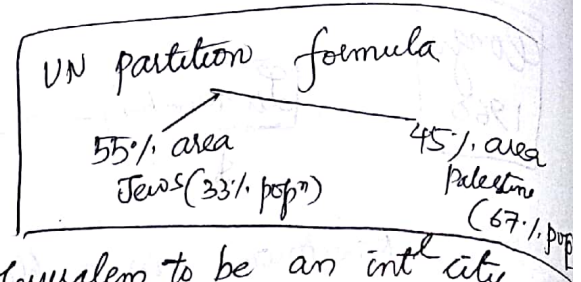 UN partition formula
55% area
Jews (33% popⁿ)
45% area
Palestine
(67% pop
Jerusalem to be an intˡ city